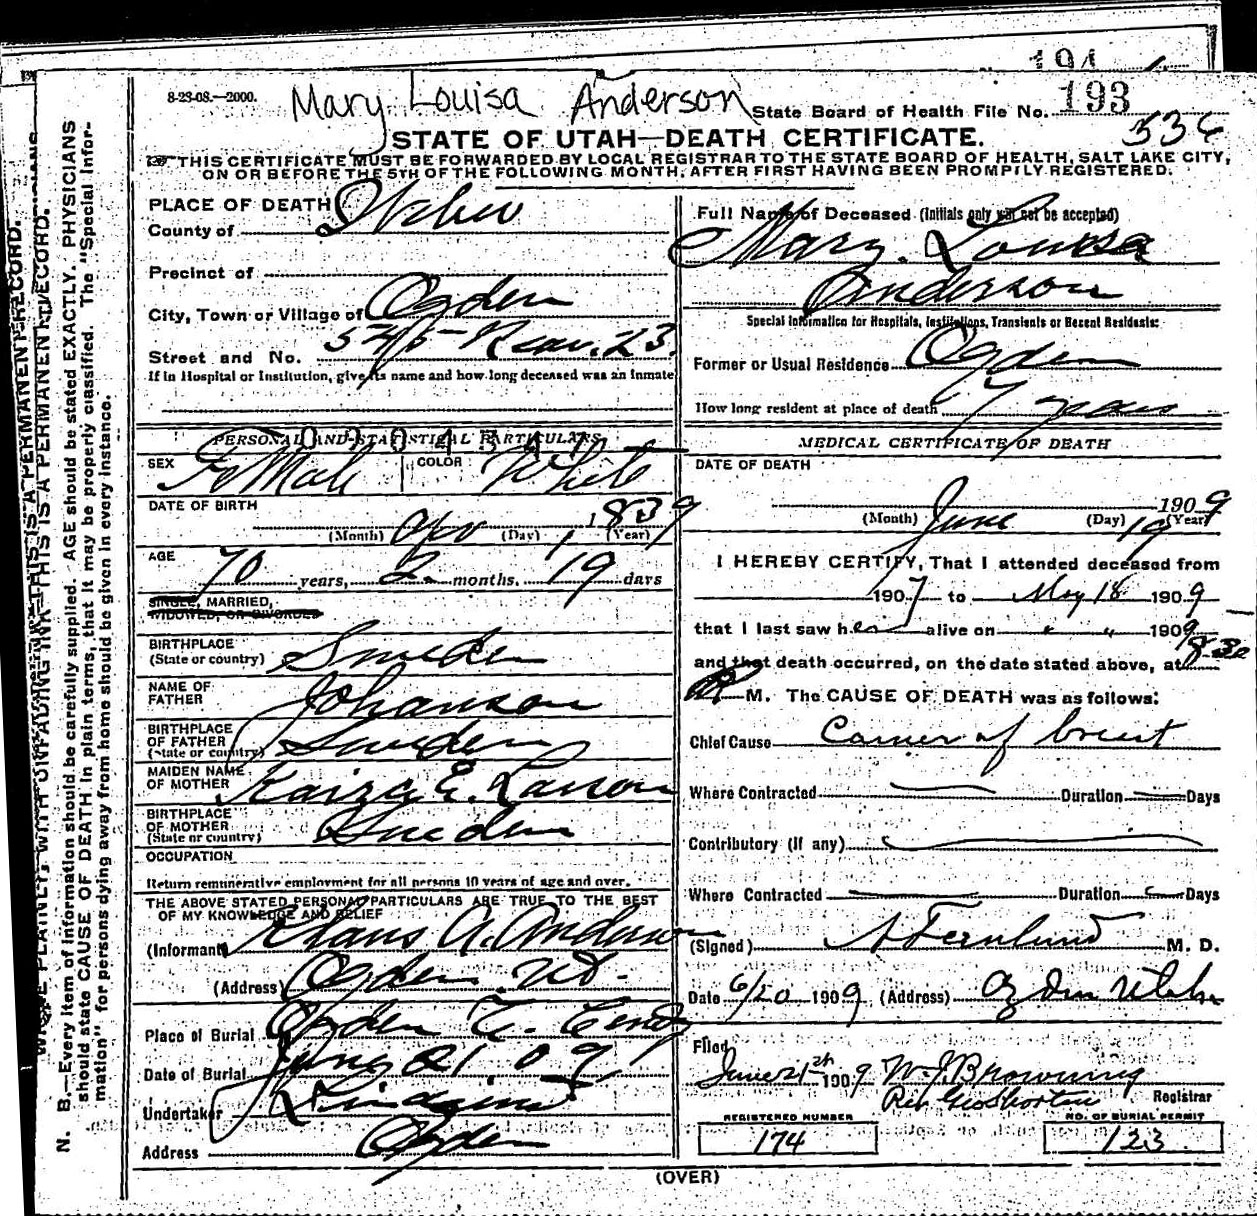 194
8-23-08.—2000.
Mary Louisa Anderson
State Board of Health File No. 193
536
STATE OF UTAH—DEATH CERTIFICATE.
THIS CERTIFICATE MUST BE FORWARDED BY LOCAL REGISTRAR TO THE STATE BOARD OF HEALTH, SALT LAKE CITY,
ON OR BEFORE THE 5TH OF THE FOLLOWING MONTH, AFTER FIRST HAVING BEEN PROMPTLY REGISTERED.
PLACE OF DEATH
County of Weber
Precinct of
City, Town or Village of Ogden
Street and No. 23
If in Hospital or Institution, give its name and how long deceased was an inmate
PERSONAL AND STATISTICAL PARTICULARS
SEX FeMale COLOR White
DATE OF BIRTH
(Month) Apr (Day) 1 (Year) 1839
AGE
70 years, 2 months. 19 days
SINGLE, MARRIED,
WIDOWED, OR DIVORCED
BIRTHPLACE
(State or country) Sweden
NAME OF
FATHER Johanson
BIRTHPLACE
OF FATHER
(State or country) Sweden
MAIDEN NAME
OF MOTHER Kaiza E. Larson
BIRTHPLACE
OF MOTHER
(State or country) Sweden
OCCUPATION
Return remunerative employment for all persons 10 years of age and over.
THE ABOVE STATED PERSONAL PARTICULARS ARE TRUE TO THE BEST
OF MY KNOWLEDGE AND BELIEF
(Informant) Klaus A. Anderson
(Address) Ogden Ut.
Place of Burial Ogden
Date of Burial June 21. 09
Undertaker Lindquist
Address Ogden
Full Name of Deceased (Initials only will not be accepted)
Mary Louisa
Anderson
Special Information for Hospitals, Institutions, Transients or Recent Residents:
Former or Usual Residence Ogden
How long resident at place of death 7 years
MEDICAL CERTIFICATE OF DEATH
DATE OF DEATH
(Month) June (Day) 19 (Year) 1909
I HEREBY CERTIFY, That I attended deceased from
1907 to May 18 1909
that I last saw her alive on " " 1909
and that death occurred, on the date stated above, at 8.30
M. The CAUSE OF DEATH was as follows:
Chief Cause Cancer of breast
Where Contracted Duration Days
Contributory (if any)
Where Contracted Duration Days
(Signed) A Fernlund M. D.
Date 6/20 1909 (Address) Ogden Utah
Filed
June 21st 1909 W. J. Browning
Geo Shorten Registrar
REGISTERED NUMBER
174
NO. OF BURIAL PERMIT
123
(OVER)
WRITE PLAINLY, WITH UNFADING INK—THIS IS A PERMANENT RECORD.
N. B.—Every item of information should be carefully supplied. AGE should be stated EXACTLY. PHYSICIANS
should state CAUSE OF DEATH in plain terms, that it may be properly classified. The "Special Infor-
mation" for persons dying away from home should be given in every instance.